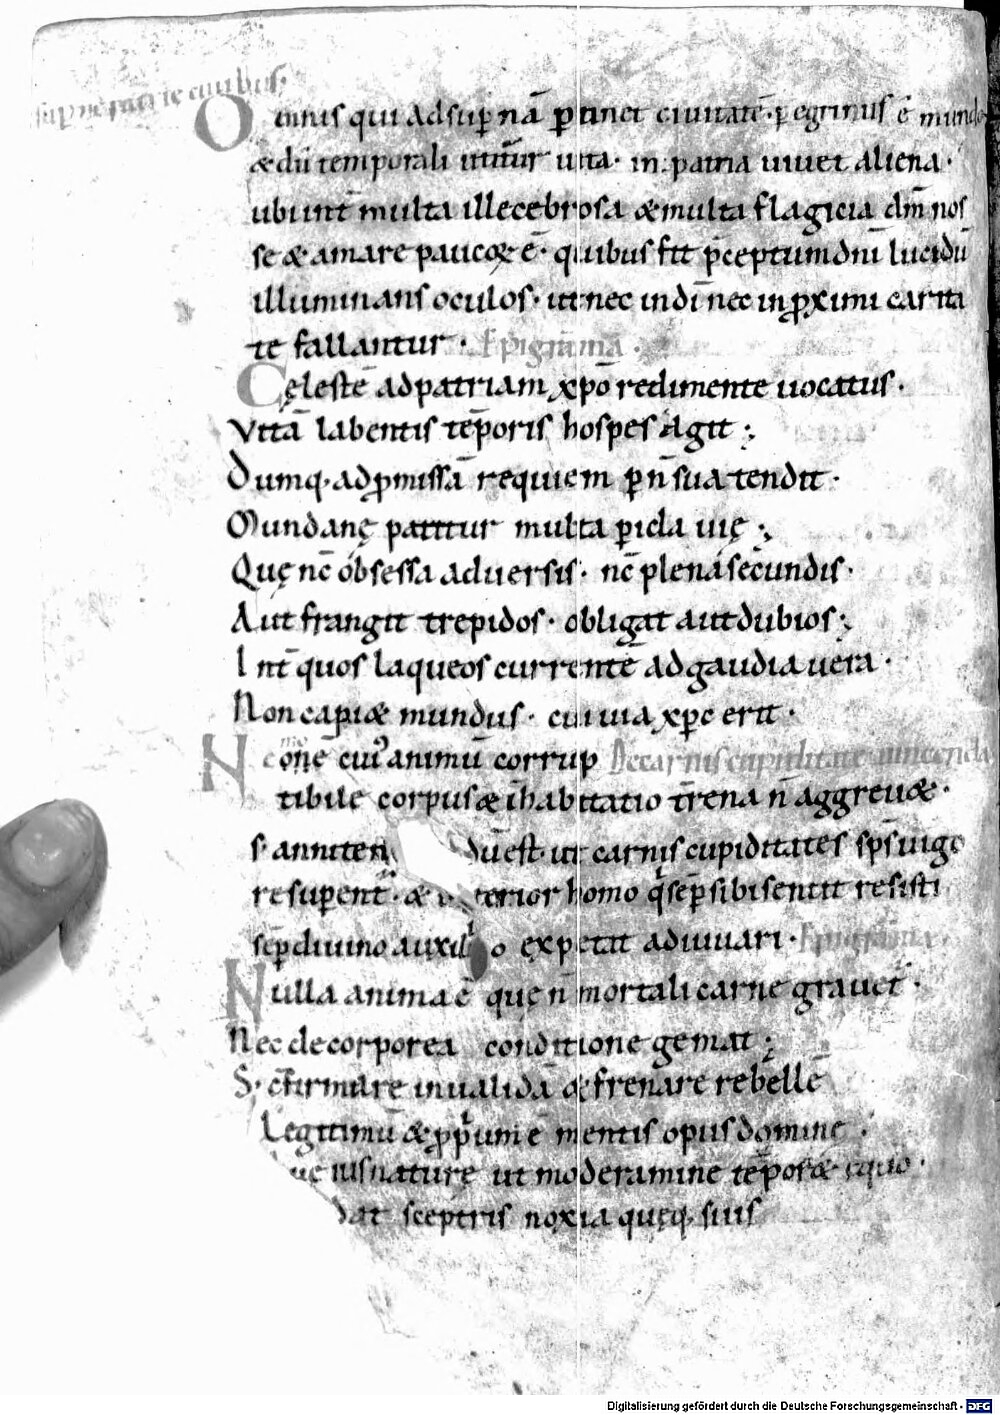 supnę patrie ciuibus.
Omnis qui adsup̄nā ꝑtinet ciuitatē. ꝑegrinus ē mundo
& dū temporali utitur uita. in patria uiuet aliena.
ubi int̄ multa illecebrosa & multa flagicia dm̄ nos
se & amare paucoꝝ ē. quibus fit p̄ceptum dnī lucidū
illuminans oculos. ut nec in dī nec in ꝓximi carita
te fallantur. Epigrāma.
Cęlestē ad patriam xp̄o redimente uocatus.
Vitā labentis tēporis hospes agit;
Dumq. ad ꝓmissā requiem ꝑ n̄ sua tendit.
Mundanę patitur multa ꝑicla uię;
Quę nc̄ obsessa aduersis. nc̄ plena secundis.
Aut frangit trepidos. obligat aut dubios;
Int̄ quos laqueos currentē ad gaudia uera.
Non capi& mundus. cui uia xp̄c erit.
De carnis cupiditate uincenda
Nemo ē cui' animū corrup
tibile corpus & īhabitatio t̄rena n̄ aggreu&.
s. anniten dū est. ut carnis cupiditates sp̄s uigo
re suꝑent̄. & terior homo q sēꝑ sibi sentit resisti
sēꝑ diuino auxilio expetat adiuuari. Epigrāma.
Nulla anima ē quę n̄ mortali carne grauet̄.
Nec de corporea conditione gemat;
S. c̄firmare inualidā & frenare rebellē
Legitimū & ꝓpriū ē mentis opus domine.
ius naturę ut moderamine tēpor& equo.
dat sceptris noxia quęq. suis
Digitalisierung gefördert durch die Deutsche Forschungsgemeinschaft - DFG